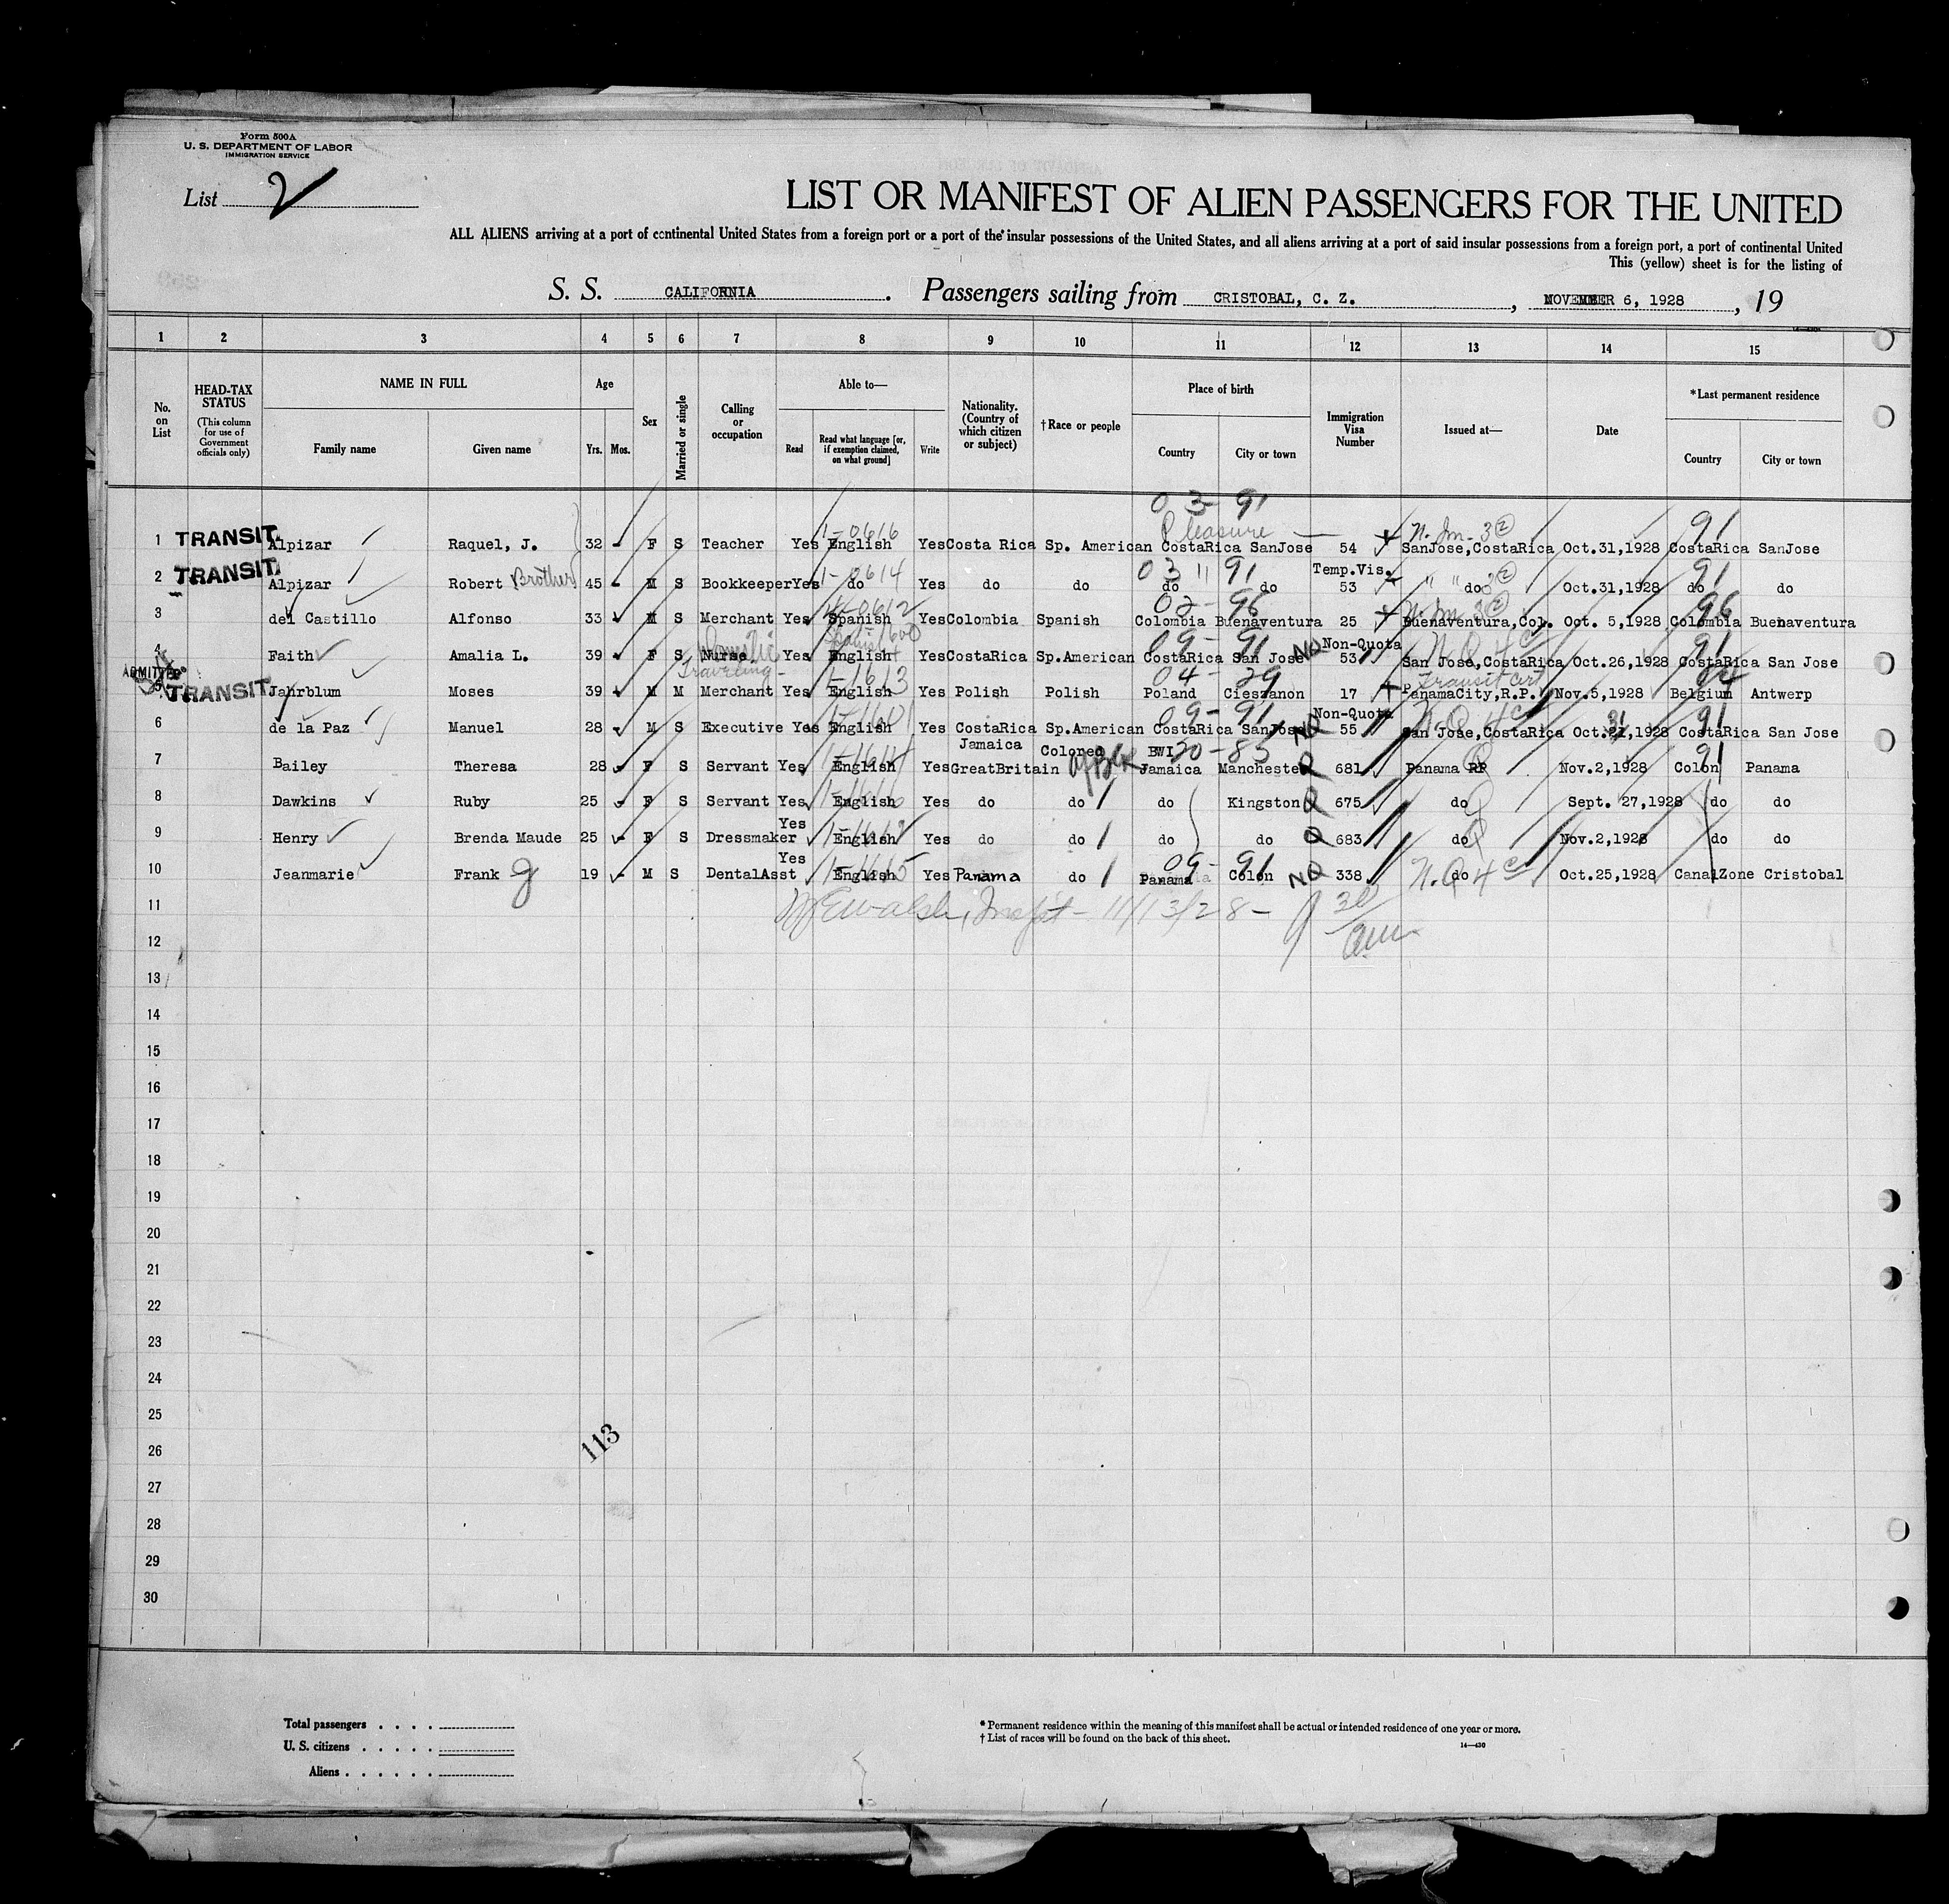 Form 500A
U. S. DEPARTMENT OF LABOR
IMMIGRATION SERVICE
List 2
LIST OR MANIFEST OF ALIEN PASSENGERS FOR THE UNITED
ALL ALIENS arriving at a port of continental United States from a foreign port or a port of the insular possessions of the United States, and all aliens arriving at a port of said insular possessions from a foreign port, a port of continental United
This (yellow) sheet is for the listing of
S. S. CALIFORNIA . Passengers sailing from CRISTOBAL, C. Z. , NOVEMBER 6, 1928 , 19
1 2 3 4 5 6 7 8 9 10 11 12 13 14 15
No. on List
HEAD-TAX STATUS (This column for use of Government officials only)
NAME IN FULL Family name Given name
Age Yrs. Mos.
Sex
Married or single
Calling or occupation
Able to— Read Read what language [or, if exemption claimed, on what ground] Write
Nationality. (Country of which citizen or subject)
†Race or people
Place of birth Country City or town
Immigration Visa Number
Issued at—
Date
*Last permanent residence Country City or town
03-91
1-0616 Pleasure — N.Im.3② 91
1 TRANSIT Alpizar Raquel, J. 32 - F S Teacher Yes English Yes Costa Rica Sp. American CostaRica SanJose 54 SanJose,CostaRica Oct.31,1928 CostaRica SanJose
1-0614 03 " 91 Temp.Vis. 91
2 TRANSIT Alpizar Robert Brother 45 - M S Bookkeeper Yes do Yes do do do do 53 " " do ② Oct.31,1928 do do
02-96 N.Im 3② 96
3 del Castillo Alfonso 33 M S Merchant Yes Spanish Yes Colombia Spanish Colombia Buenaventura 25 Buenaventura,Col. Oct. 5,1928 Colombia Buenaventura
Domestic 09-91 Non-Quota N.Q 4c 91
4 Faith Amalia L. 39 F S Nurse Yes English Yes CostaRica Sp.American CostaRica San Jose NQ 53 San Jose,CostaRica Oct.26,1928 CostaRica San Jose
ADMITTED Traveling- 1-1613 04-29 Transit Cert
5 TRANSIT Jahrblum Moses 39 M M Merchant Yes English Yes Polish Polish Poland Cieszanon 17 PanamaCity,R.P. Nov.5,1928 Belgium Antwerp
09-91 Non-Quota N.Q 4c 31 91
6 de la Paz Manuel 28 - M S Executive Yes English Yes CostaRica Sp.American CostaRica SanJose NQ 55 San Jose,CostaRica Oct.21,1928 CostaRica San Jose
Jamaica Colored BWI 20-85 91
7 Bailey Theresa 28 F S Servant Yes English Yes GreatBritain Jamaica Manchester Q 681 Panama RP Q Nov.2,1928 Colon Panama
8 Dawkins Ruby 25 - F S Servant Yes English Yes do do do Kingston Q 675 do Q Sept. 27,1928 do do
Yes
9 Henry Brenda Maude 25 - F S Dressmaker English Yes do do do do Q 683 do Q Nov.2,1928 do do
Yes 09-91
10 Jeanmarie Frank G 19 - M S DentalAsst English Yes Panama do Panama Colon NQ 338 N.Q 4c do Oct.25,1928 CanalZone Cristobal
11 11/13/28-
12
13
14
15
16
17
18
19
20
21
22
23
24
25
26 113
27
28
29
30
Total passengers . . . .
U. S. citizens . . . . .
Aliens . . . . . .
* Permanent residence within the meaning of this manifest shall be actual or intended residence of one year or more.
† List of races will be found on the back of this sheet.
14—430